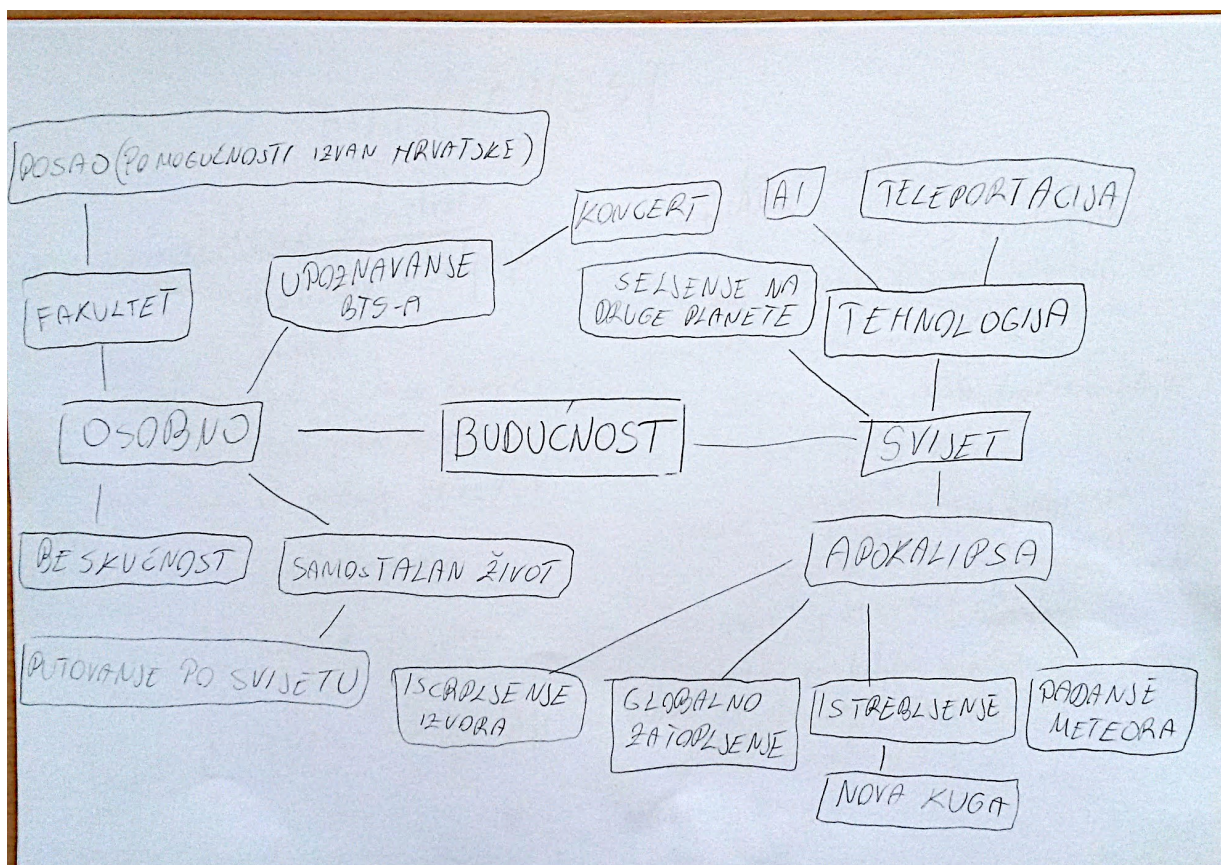 POSAO (PO MOGUĆNOSTI IZVAN HRVATSKE)
KONCERT
AI
TELEPORTACIJA
FAKULTET
UPOZNAVANJE
BTS-A
SELJENJE NA
DRUGE PLANETE
TEHNOLOGIJA
OSOBNO
BUDUĆNOST
SVIJET
BESKUĆNOST
SAMOSTALAN ŽIVOT
APOKALIPSA
PUTOVANJE PO SVIJETU
ISCRPLJENJE
IZVORA
GLOBALNO
ZATOPLJENJE
ISTREBLJENJE
PADANJE
METEORA
NOVA KUGA